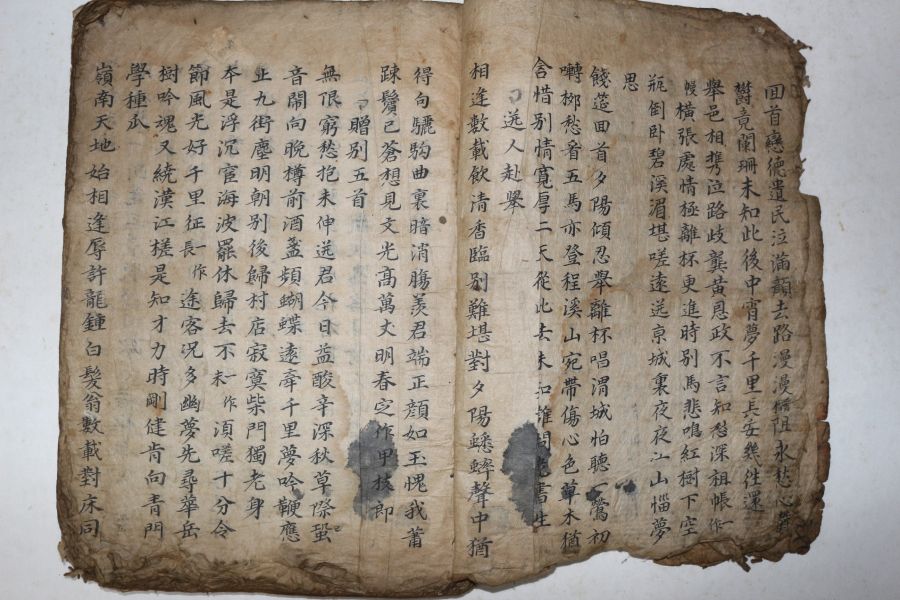 回首戀德遺民泣滿顔去路漫漫脩阻永愁心
欝竟闌珊未知此後中宵夢千里長安幾徃還
舉邑相携泣路歧龔黄恩政不言知愁深祖帳一作
帳橫張處情極離杯更進時别馬悲鳴紅樹下空
瓶倒卧碧溪湄堪嗟遠送京城裏夜夜江山惱夢
思
餞筵回首夕陽傾忍舉離杯唱渭城怕聽一鶯初
囀柳愁看五馬亦登程溪山宛帶傷心色草木猶
含惜别情寛厚二天從此去未知誰問書生
送人赴舉
相逢數載飲清香臨别難堪對夕陽蟋蟀聲中猶
得句驪駒曲裏暗消膓羡君端正顔如玉愧我蕭
踈鬢已蒼想見文光高萬丈明春定作甲枝郎
贈别五首
無限窮愁抱未伸送君今日益酸辛深秋草際蛩
音鬧向晚樽前酒盞頻蝴蝶遠牽千里夢吟鞭應
止九街塵明朝别後歸村店寂寞柴門獨老身
本是浮沉宦海波罷休歸去不未一作須嗟十分令
節風光好千里征長一作途客況多幽夢先尋華岳
樹吟魂又繞漢江槎是知才力時剛健肯向青門
學種瓜
嶺南天地始相逢辱許龍鍾白髮翁數載對床同